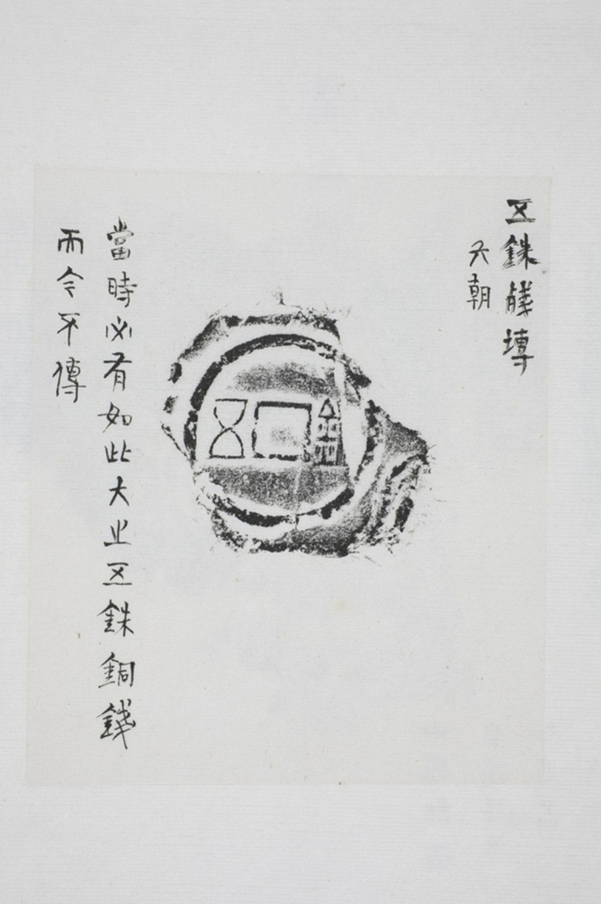 五銖殘塼
六朝
五銖
當時必有如此大之五銖銅錢
而今不傳